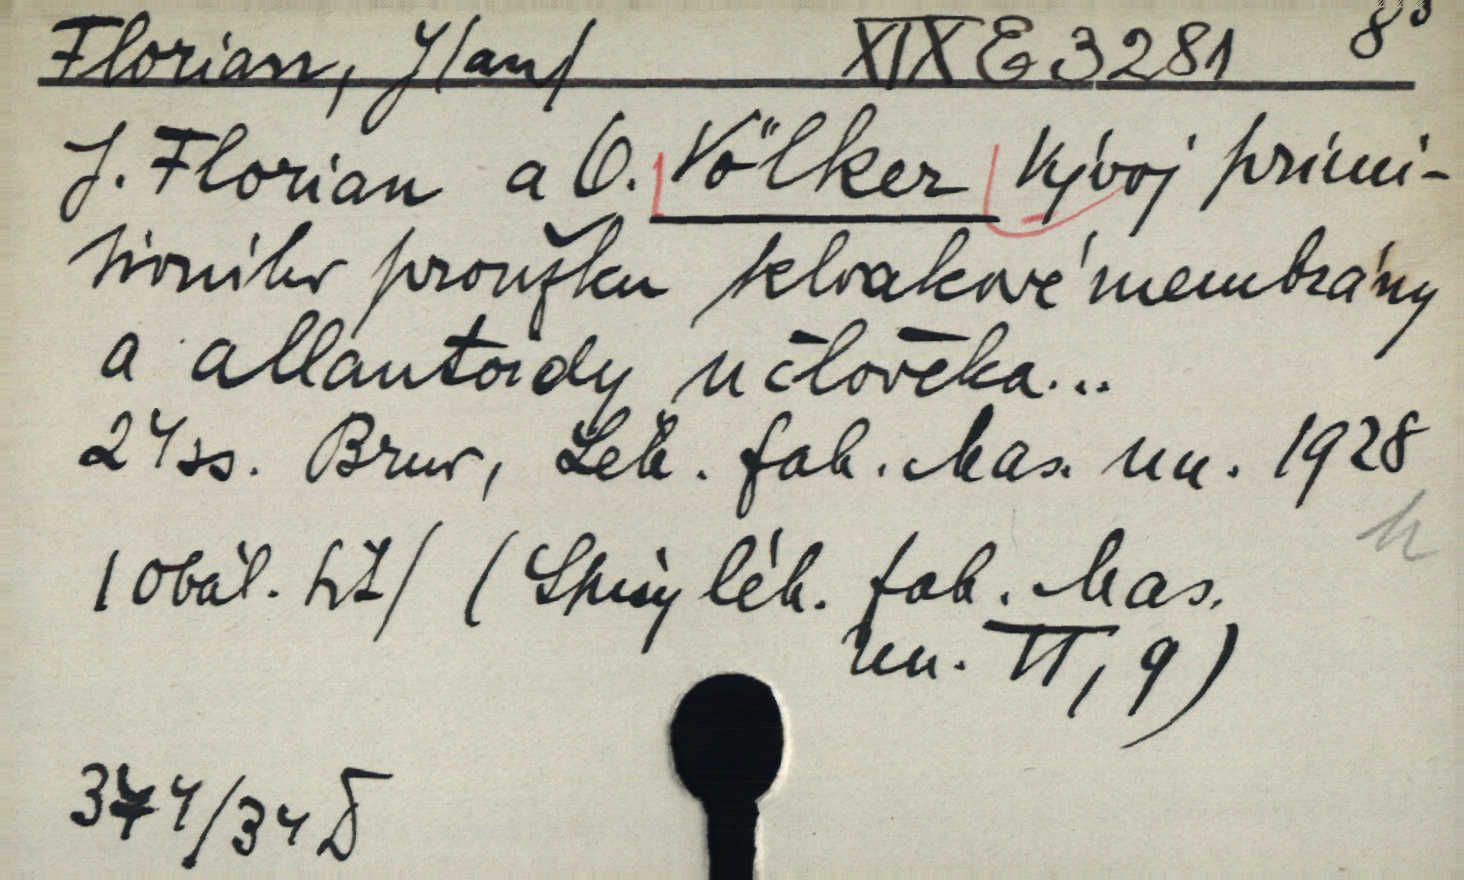 Florian, J/an/ XIX E 3281 8°
J. Florian a O. Völker Vývoj primi-
tivního proužku kloakové membrány
a allantoidy u člověka...
24 ss. Brno, Lék. fak. Mas. un. 1928
/obál. tit/ (Spisy lék. fak. Mas.
un. VI, 9)
374/34 D